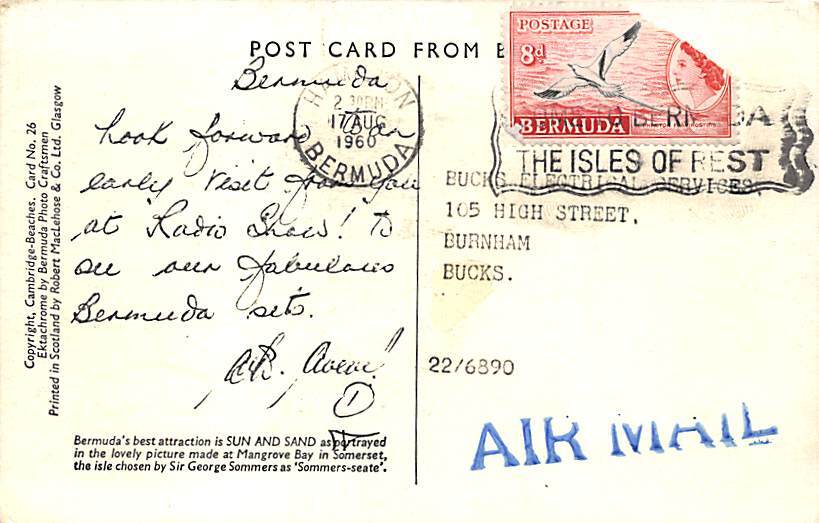 POST CARD FROM B
Bermuda
Look forward to an
early visit from you
at Radio Show! To
see our fabulous
Bermuda sets.
Bermuda's best attraction is SUN AND SAND as portrayed
in the lovely picture made at Mangrove Bay in Somerset,
the isle chosen by Sir George Sommers as 'Sommers-seate'.
Copyright, Cambridge-Beaches. Card No. 26
Ektachrome by Bermuda Photo Craftsmen
Printed in Scotland by Robert MacLehose & Co. Ltd. Glasgow
HAMILTON
2 30PM
17 AUG
1960
BERMUDA
POSTAGE
8d
BERMUDA
BERMUDA
THE ISLES OF REST
BUCKS ELECTRICAL SERVICES,
105 HIGH STREET,
BURNHAM
BUCKS.
22/6890
AIR MAIL